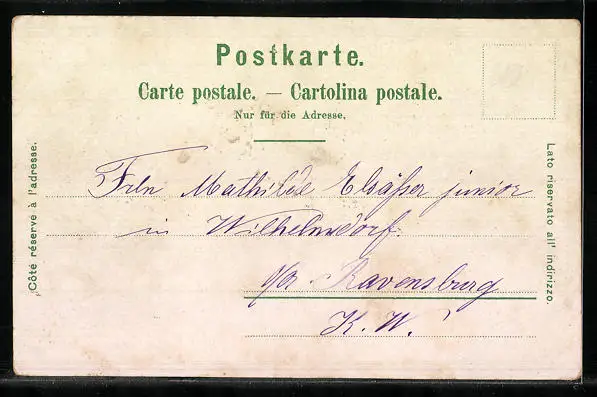 Postkarte.
Carte postale. — Cartolina postale.
Nur für die Adresse.
Côté réservé à l'adresse.
Lato riservato all' indirizzo.
Frln Mathilde Elsäßer junior
in Wilhelmsdorf.
Ravensburg
K. W.